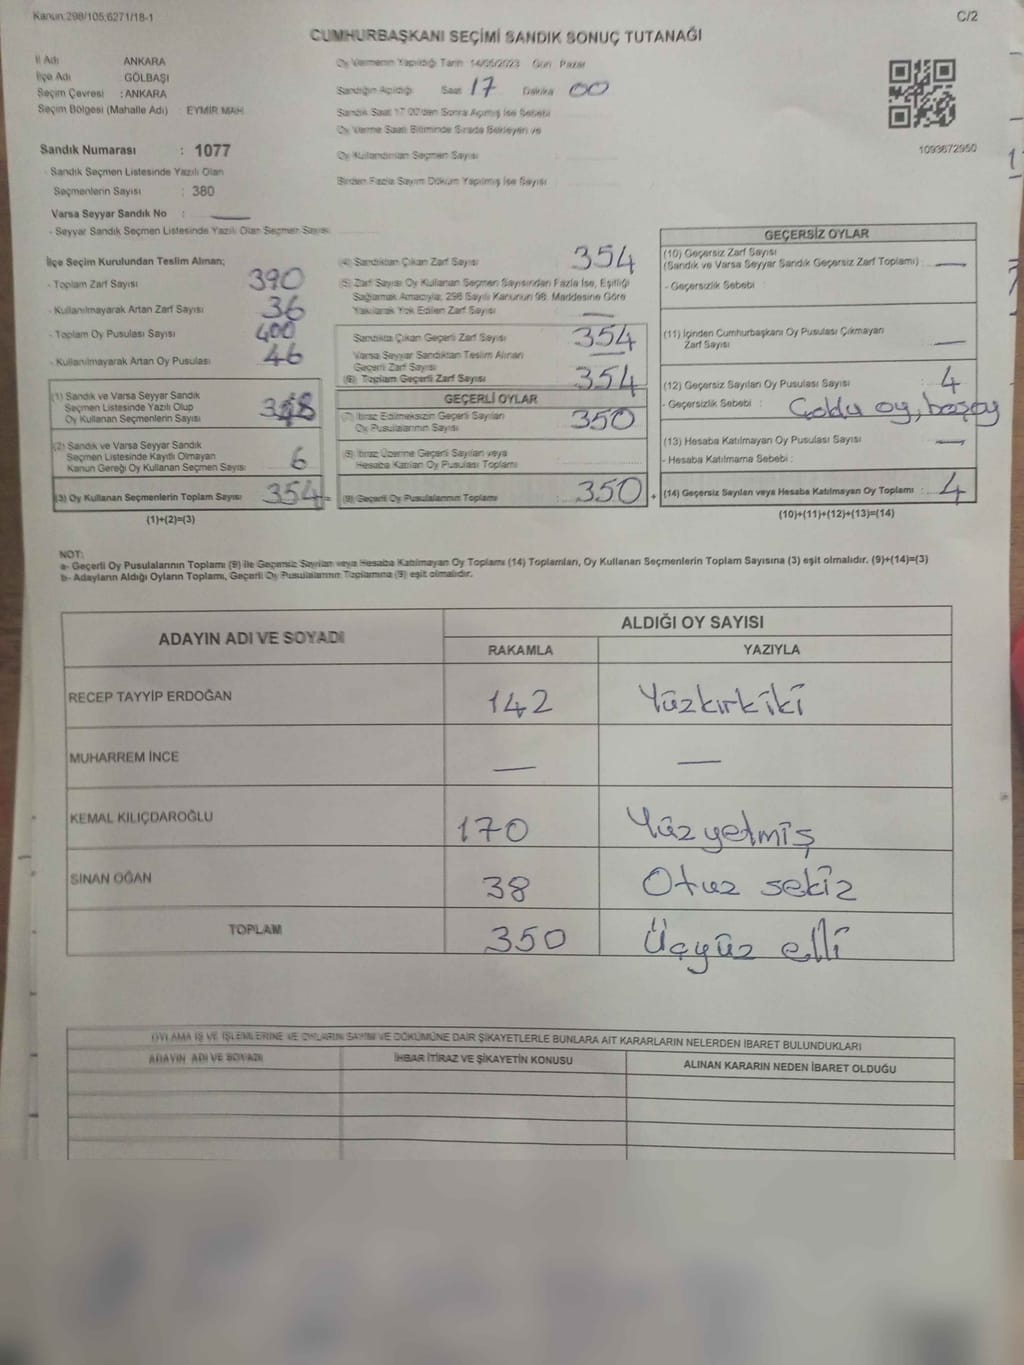 Kanun:298/105,6271/18-1
C/2
CUMHURBAŞKANI SEÇİMİ SANDIK SONUÇ TUTANAĞI
İl Adı ANKARA
İlçe Adı : GÖLBAŞI
Seçim Çevresi : ANKARA
Seçim Bölgesi (Mahalle Adı) : EYMİR MAH.
Sandık Numarası : 1077
- Sandık Seçmen Listesinde Yazılı Olan
Seçmenlerin Sayısı : 380
Varsa Seyyar Sandık No :
- Seyyar Sandık Seçmen Listesinde Yazılı Olan Seçmen Sayısı
Oy Vermenin Yapıldığı Tarih: 14/05/2023 Gün: Pazar
Sandığın Açıldığı Saat 17 Dakika 00
Sandık Saat 17:00'den Sonra Açılmış İse Sebebi
Oy Verme Saati Bitiminde Sırada Bekleyen ve
Oy Kullandırılan Seçmen Sayısı
Birden Fazla Sayım Döküm Yapılmış İse Sayısı
1093672950
İlçe Seçim Kurulundan Teslim Alınan;
- Toplam Zarf Sayısı 390
- Kullanılmayarak Artan Zarf Sayısı 36
- Toplam Oy Pusulası Sayısı 400
- Kullanılmayarak Artan Oy Pusulası 46
(1) Sandık ve Varsa Seyyar Sandık
Seçmen Listesinde Yazılı Olup
Oy Kullanan Seçmenlerin Sayısı 348
(2) Sandık ve Varsa Seyyar Sandık
Seçmen Listesinde Kayıtlı Olmayan
Kanun Gereği Oy Kullanan Seçmen Sayısı: 6
(3) Oy Kullanan Seçmenlerin Toplam Sayısı 354 =
(1)+(2)=(3)
(4) Sandıktan Çıkan Zarf Sayısı 354
(5) Zarf Sayısı Oy Kullanan Seçmen Sayısından Fazla İse, Eşitliği
Sağlamak Amacıyla; 298 Sayılı Kanunun 98. Maddesine Göre
Yakılarak Yok Edilen Zarf Sayısı —
Sandıkta Çıkan Geçerli Zarf Sayısı 354
Varsa Seyyar Sandıktan Teslim Alınan
Geçerli Zarf Sayısı —
(6) Toplam Geçerli Zarf Sayısı 354
GEÇERLİ OYLAR
(7) İtiraz Edilmeksizin Geçerli Sayılan
Oy Pusulalarının Sayısı 350
(8) İtiraz Üzerine Geçerli Sayılan veya
Hesaba Katılan Oy Pusulası Toplamı
(9) Geçerli Oy Pusulalarının Toplamı : 350 +
GEÇERSİZ OYLAR
(10) Geçersiz Zarf Sayısı
(Sandık ve Varsa Seyyar Sandık Geçersiz Zarf Toplamı) : —
- Geçersizlik Sebebi :
(11) İçinden Cumhurbaşkanı Oy Pusulası Çıkmayan
Zarf Sayısı —
(12) Geçersiz Sayılan Oy Pusulası Sayısı : 4
- Geçersizlik Sebebi : Çoklu oy, boş oy
(13) Hesaba Katılmayan Oy Pusulası Sayısı : —
- Hesaba Katılmama Sebebi :
(14) Geçersiz Sayılan veya Hesaba Katılmayan Oy Toplamı : 4
(10)+(11)+(12)+(13)=(14)
NOT:
a- Geçerli Oy Pusulalarının Toplamı (9) ile Geçersiz Sayılan veya Hesaba Katılmayan Oy Toplamı (14) Toplamları, Oy Kullanan Seçmenlerin Toplam Sayısına (3) eşit olmalıdır. (9)+(14)=(3)
b- Adayların Aldığı Oyların Toplamı, Geçerli Oy Pusulalarının Toplamına (9) eşit olmalıdır.
ADAYIN ADI VE SOYADI
ALDIĞI OY SAYISI
RAKAMLA YAZIYLA
RECEP TAYYİP ERDOĞAN 142 Yüzkırkiki
MUHARREM İNCE — —
KEMAL KILIÇDAROĞLU 170 Yüzyetmiş
SİNAN OĞAN 38 Otuz sekiz
TOPLAM 350 Üçyüz elli
OYLAMA İŞ VE İŞLEMLERİNE VE OYLARIN SAYIM VE DÖKÜMÜNE DAİR ŞİKAYETLERLE BUNLARA AİT KARARLARIN NELERDEN İBARET BULUNDUKLARI
ADAYIN ADI VE SOYADI İHBAR İTİRAZ VE ŞİKAYETİN KONUSU ALINAN KARARIN NEDEN İBARET OLDUĞU